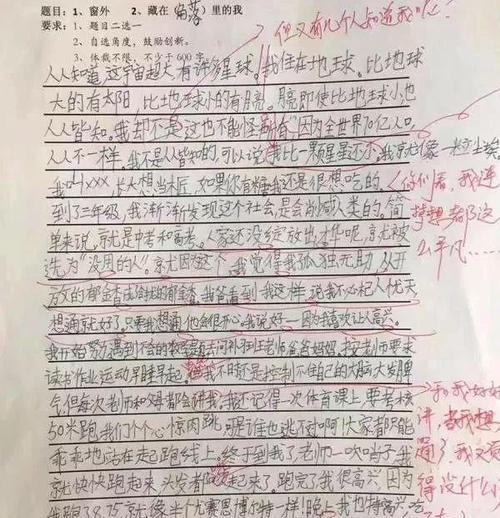 题目：1、窗外　2、藏在（角落）里的我
但又有几个人知道我呢？
要求：1、题目二选一
2、自选角度，鼓励创新。
3、体裁不限，不少于600字
人人知道，这宇宙超大，有许多星球。我住在地球。比地球
大的有太阳，比地球小的有月亮。月亮即使比地球小，也
人人皆知。我却不是这也不能怪别人，因为全世界70亿人口，
人人不一样。我不是人皆知的，可以说我比一颗星星还小。我就像一粒尘埃
我叫xxx，长大想当大厨，如果你有糖我还是很想吃的。（你们看，我连
到了三年级，我渐渐发现这个社会，是会削减人类的。简
梦想都这
单来说，就是中考和高考。人家还没绽放出才华呢，就被
么平凡……
洗为“没用的人”。就因这个，我觉得我孤独无助，从开
放的郁金香成给我的郁金香。我爸看到我这样，说我不必杞人忧天
想通就好了，只要我想通，他会很开心。我说好—因为我喜欢让人高兴。
我开始努力，遇到不会的数学题去问补习班老师爸爸妈妈，按老师要求
读书作业运动早睡早起。但我不时还是控制不住自己的大脑大发脾
气，但每次老师和父母都会讲我。我还记得一次体育课上，要考核
讲，当我想
50米跑，我们个个心惊肉跳，可是谁也逃不过啊！大家都只能
通了，我又
乖乖地站在起跑线上。终于到我了，老师一吹哨子，我
得没什么
就快快跑起来，头发都跑起来了。跑完了我很高兴，因为
我跑了8.75，就像半个尤赛恩博尔特一样！晚上，我也特高兴